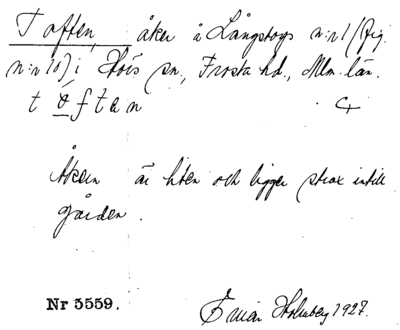 Toften, åker å Långstorps n:r 1 (fig.
n:r 10) i Höörs sn, Frosta hd., Mlm. län.
t ó f t e n
Åkern är liten och ligger strax intill
gården.
Nr 5559. Einar Holmberg 1927.